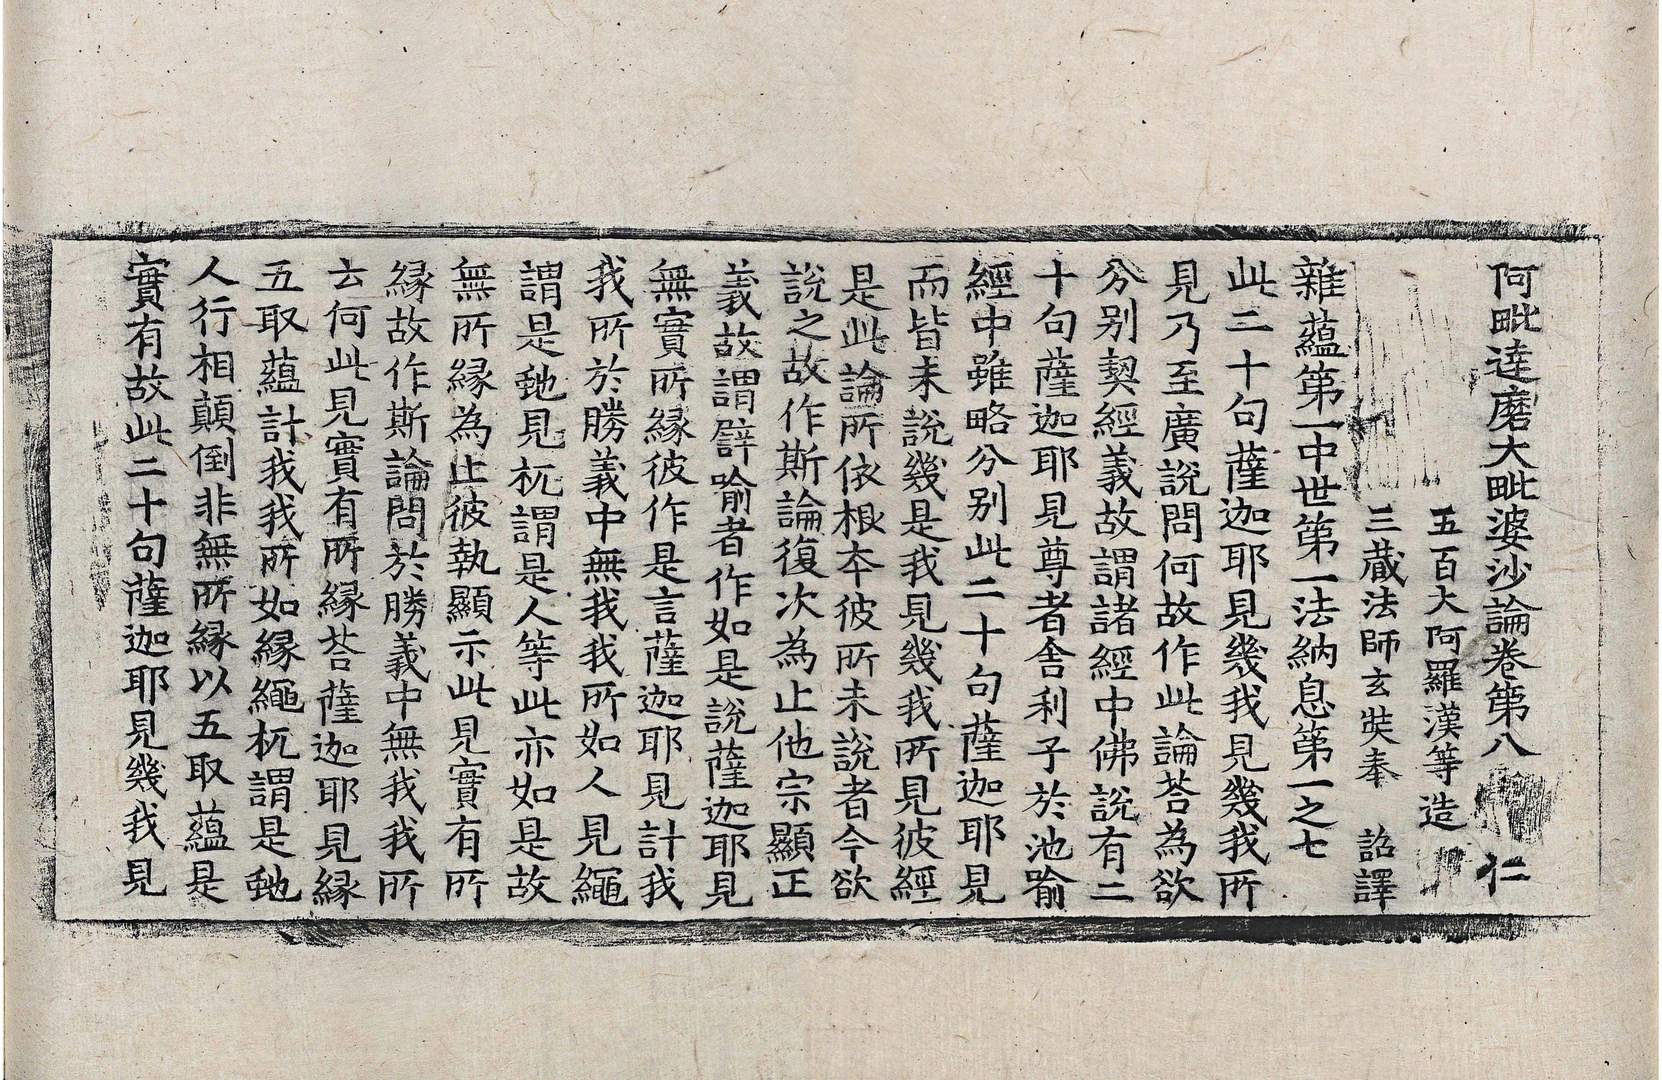 阿毗達磨大毗婆沙論卷第八 仁
五百大阿羅漢等造
三藏法師玄奘奉 詔譯
雜蘊第一中世第一法納息第一之七
此二十句薩迦耶見幾我見幾我所
見乃至廣說問何故作此論荅為欲
分別契經義故謂諸經中佛說有二
十句薩迦耶見尊者舍利子於池喻
經中雖略分別此二十句薩迦耶見
而皆未說幾是我見幾我所見彼經
是此論所依根本彼所未說者今欲
說之故作斯論復次為止他宗顯正
義故謂譬喻者作如是說薩迦耶見
無實所緣彼作是言薩迦耶見計我
我所於勝義中無我我所如人見繩
謂是虵見杌謂是人等此亦如是故
無所緣為止彼執顯示此見實有所
緣故作斯論問於勝義中無我我所
云何此見實有所緣荅薩迦耶見緣
五取蘊計我我所如緣繩杌謂是虵
人行相顛倒非無所緣以五取蘊是
實有故此二十句薩迦耶見幾我見